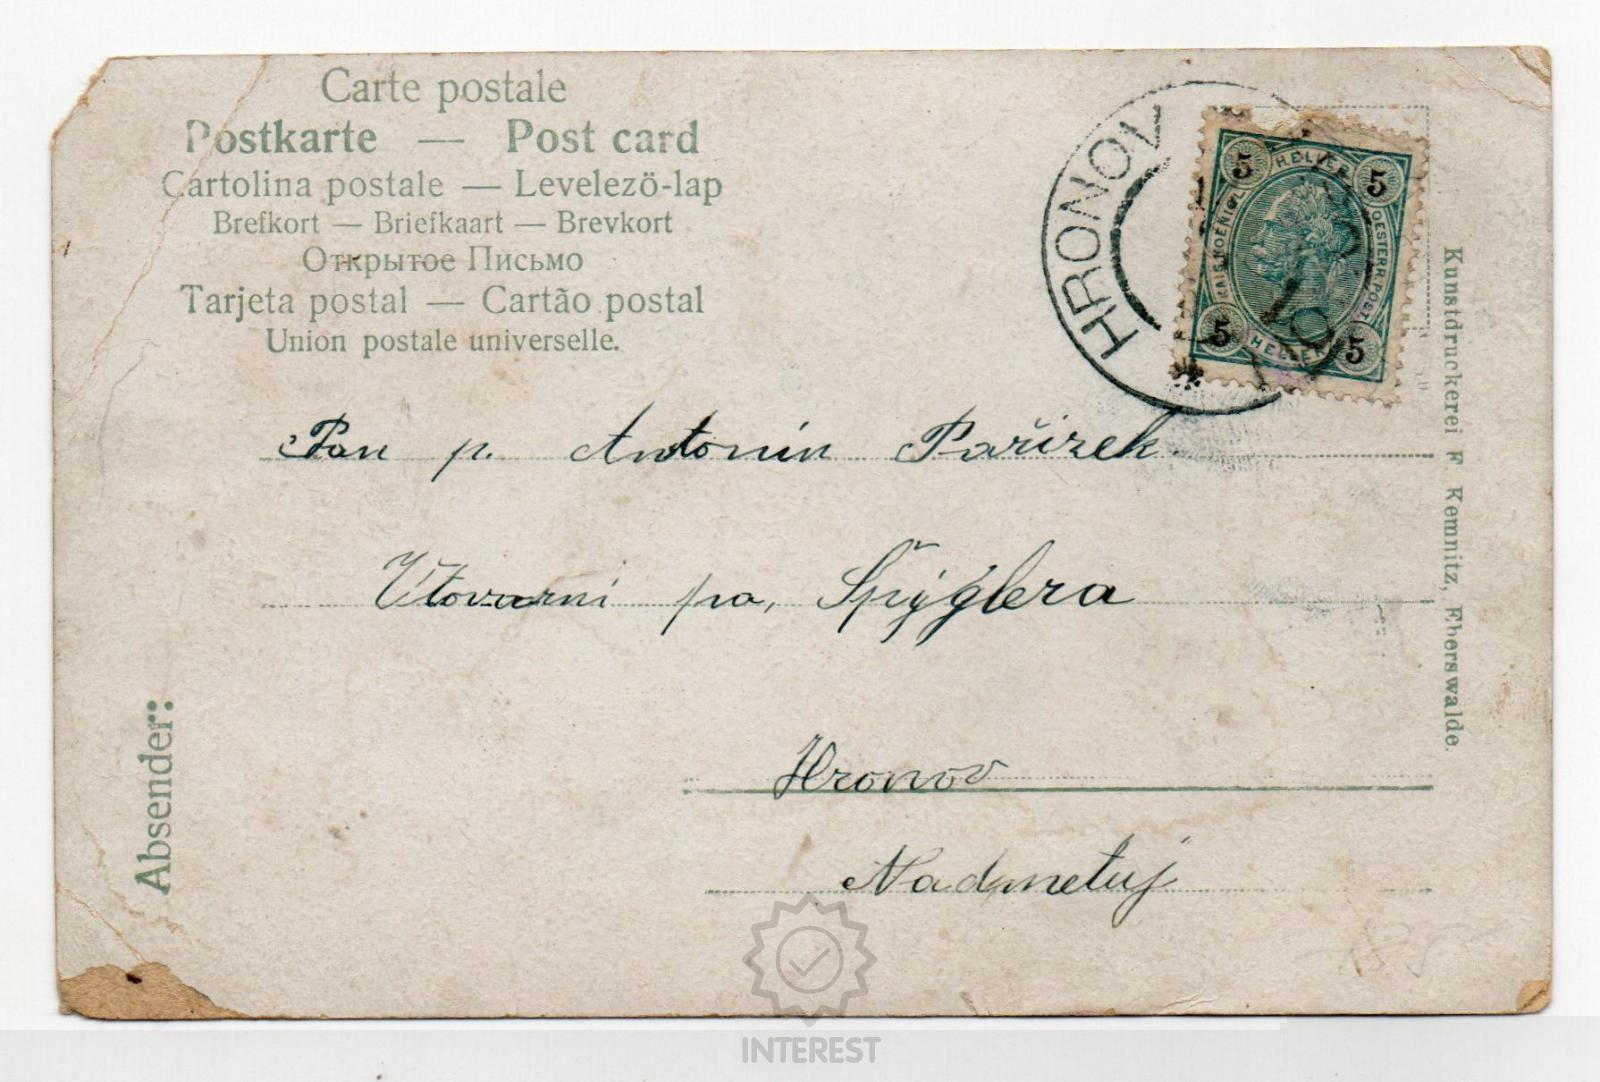 Carte postale
Postkarte — Post card
Cartolina postale — Levelezö-lap
Brefkort — Briefkaart — Brevkort
Открытое Письмо
Tarjeta postal — Cartão postal
Union postale universelle.
HRONOV
5 HELLER 5
KAIS. KOENIGL.
OESTERR. POST.
5 HELLER 5
Pan p. Antonín Pařizek
Vtovarni pa, Špýglera
Hronov
Nadmetuj
Absender:
Kunstdruckerei F Kemnitz, Eberswalde.
INTEREST